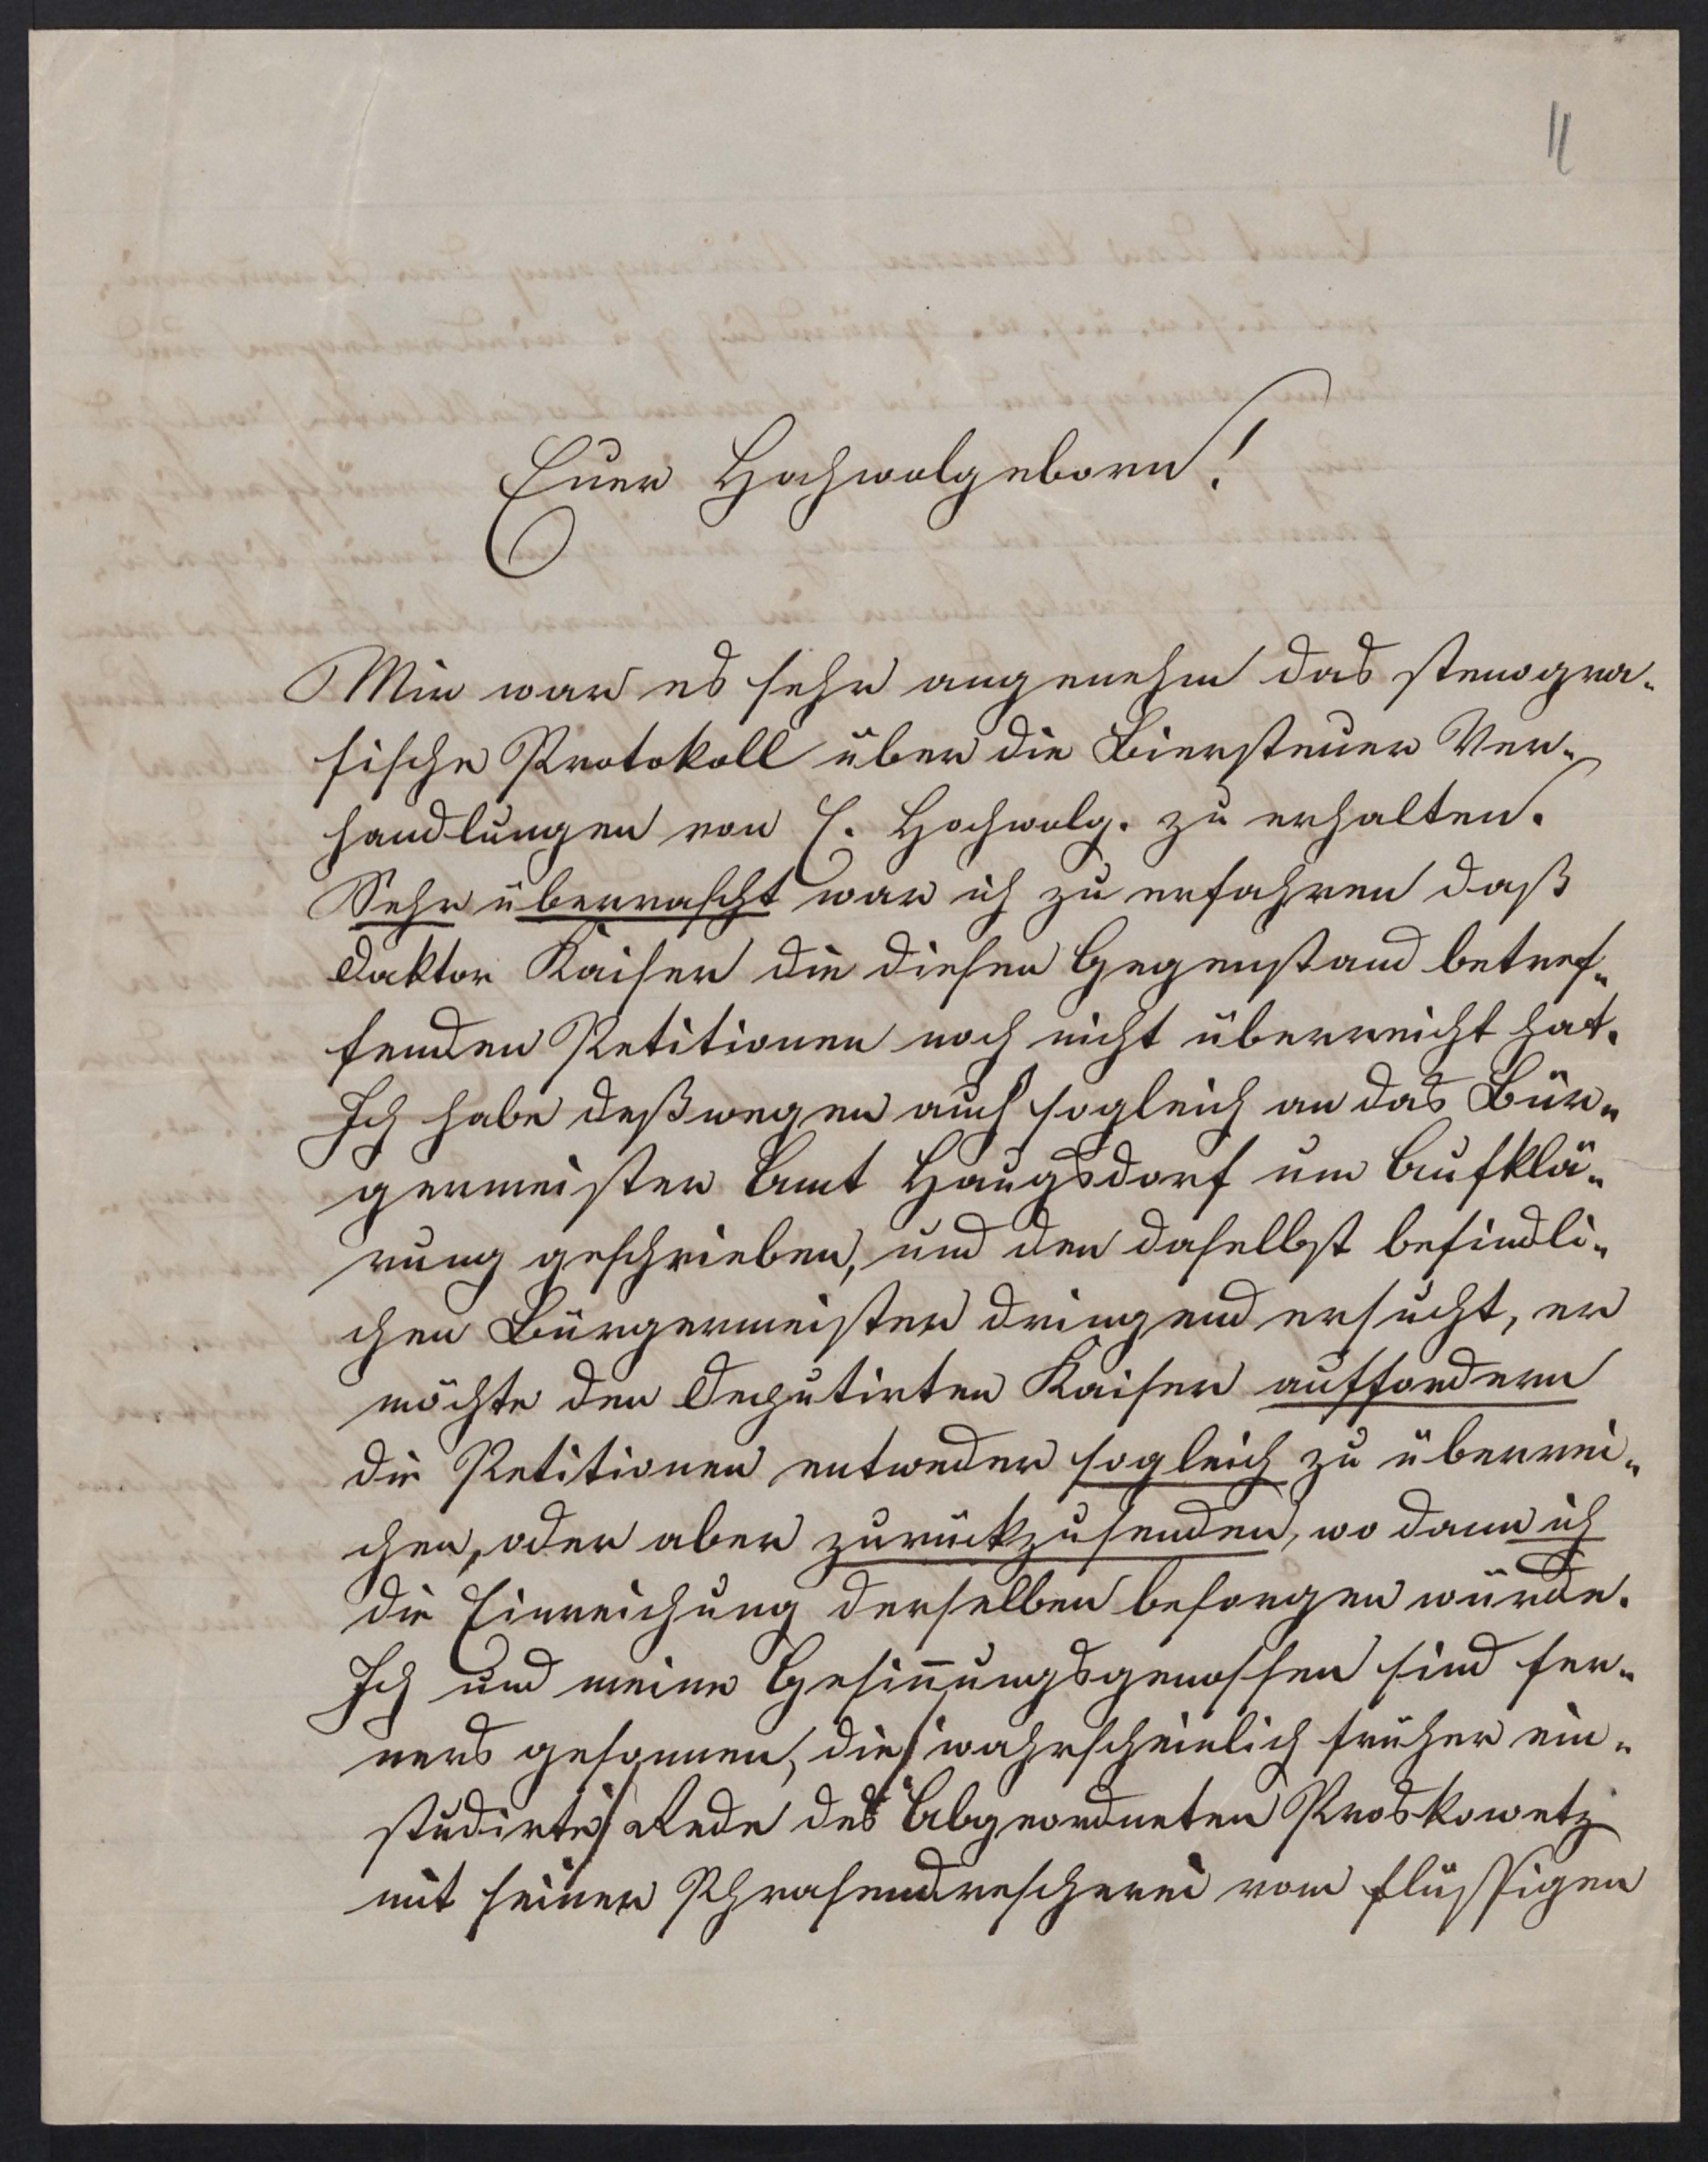 11
Euer Hochwolgeborn!
Mir war es sehr angenehm das stenogra-
fische Protokoll über die Biersteuer Ver-
handlungen von E. Hochwolg. zu erhalten.
Sehr überrascht war ich zu erfahren daß
Doktor Kaiser die diesen Gegenstand betref-
fenden Petitionen noch nicht überreicht hat.
Ich habe deßwegen auch sogleich an das Bür-
germeister Amt Haugsdorf um Aufklä-
rung geschrieben, und den daselbst befindli-
chen Bürgermeister dringend ersucht, er
möchte den Deputirten Kaiser auffordern
die Petitionen entweder sogleich zu überrei-
chen, oder aber zurückzusenden, wo dann ich
die Einreichung derselben besorgen würde.
Ich und meine Gesinnungsgenossen sind fer-
ners gesonnen, die /wahrscheinlich früher ein-
studirte/ Rede des Abgeordneten Proskowetz
mit seiner Phrasendrescherei vom flüssigen